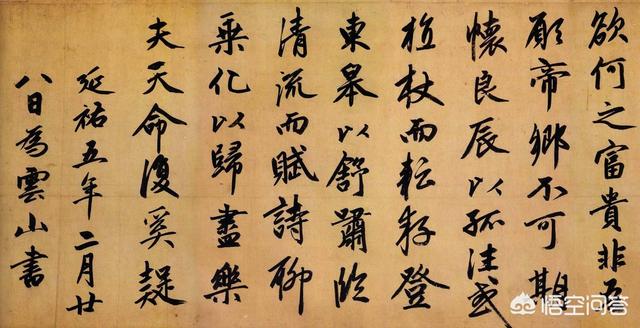 欲何之富貴非吾
願帝鄉不可期
懷良辰以孤往或
植杖而耘耔登
東皋以舒嘯臨
清流而賦詩聊
乘化以歸盡樂
夫天命復奚疑
延祐五年二月廿
八日為雲山書
悟空问答